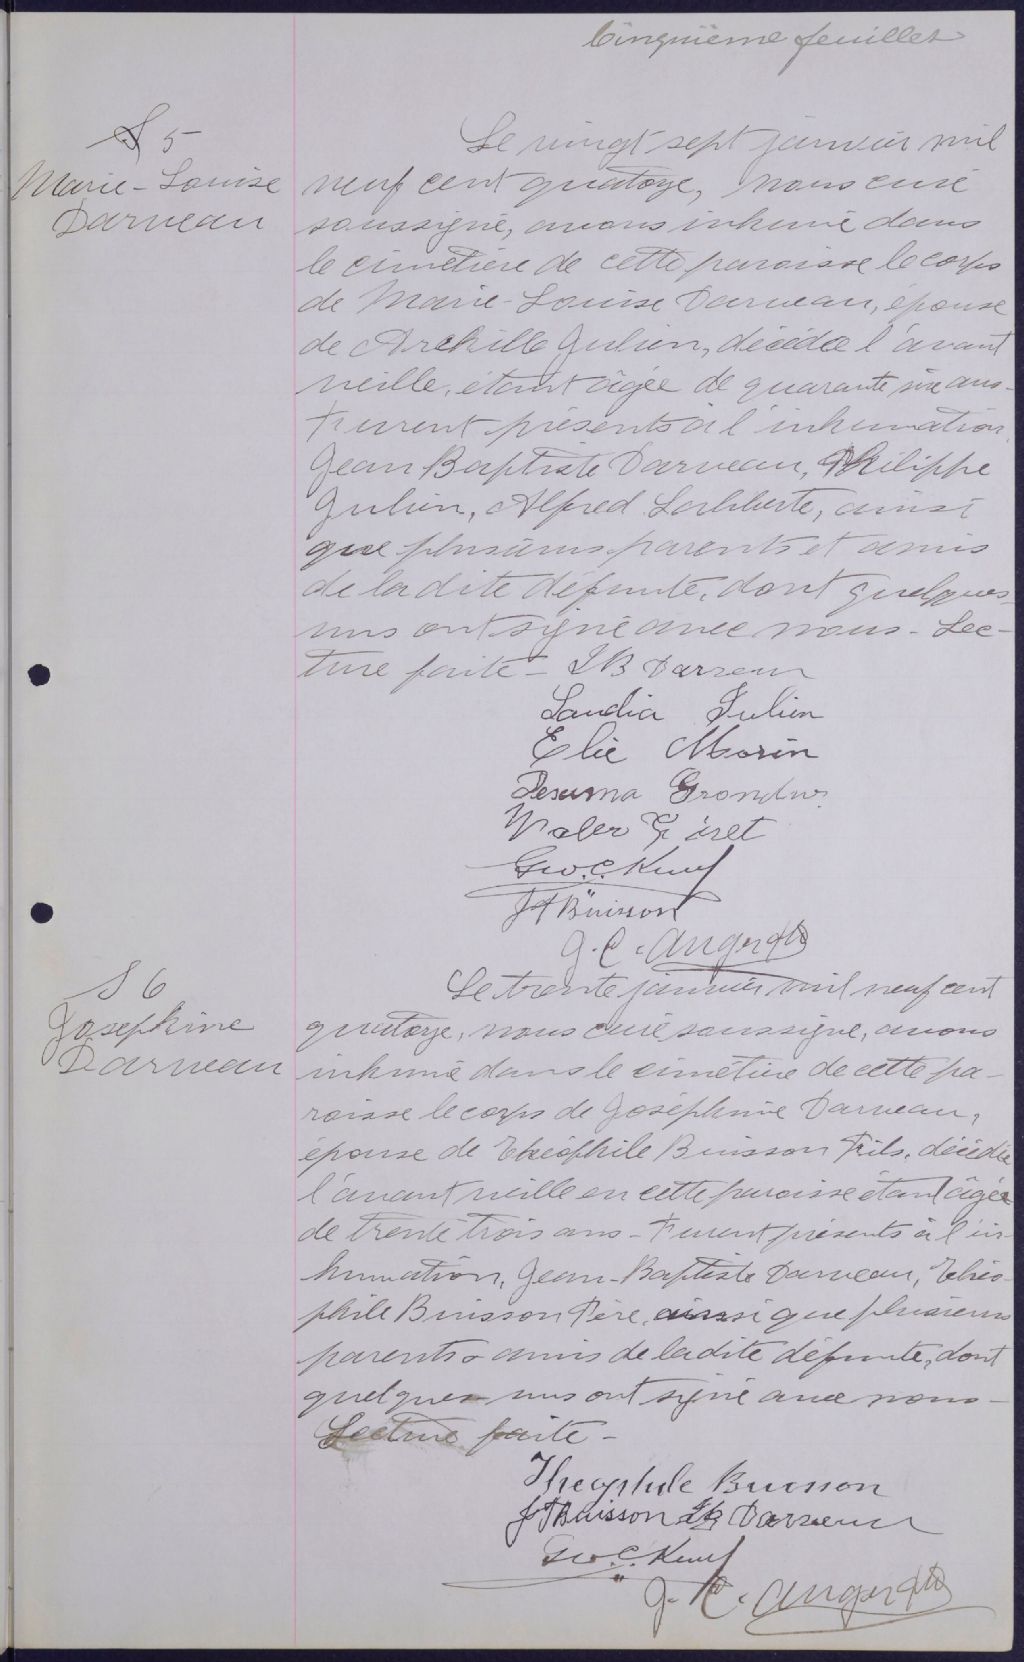 Cinquième feuillet
S 5
Marie-Louise
Darveau
Le vingt sept janvier mil
neuf cent quatorze, nous curé
soussigné, avons inhumé dans
le cimetière de cette paroisse le corps
de Marie-Louise Darveau, épouse
de Archille Julien, décédée l'avant
veille, étant âgée de quarante six ans-
Furent présents à l'inhumation,
Jean Baptiste Darveau, Philippe
Julien, Alfred Laliberté, ainsi
que plusieurs parents et amis
de la dite défunte, dont quelques
uns ont signé avec nous - Lec-
ture faite - JB Darveau
Landia Julien
Elie Morin
Grondin
Geo. C. Kempf
JT Buisson
J. C. Anger
S 6
Josephine
Darveau
Le trente janvier mil neuf cent
quatorze, nous curé soussigné, avons
inhumé dans le cimetière de cette pa-
roisse le corps de Joséphine Darveau,
épouse de Théophile Buisson Fils, décédée
l'avant veille en cette paroisse étant âgée
de trente trois ans - Furent présents à l'in-
humation, Jean-Baptiste Darveau, Théo-
phile Buisson Père, ainsi que plusieurs
parents & amis de la dite défunte, dont
quelques uns ont signé avec nous -
Lecture faite -
Theophile Buisson
JT Buisson JB Darveau
Geo. C. Kempf
J. C. Anger